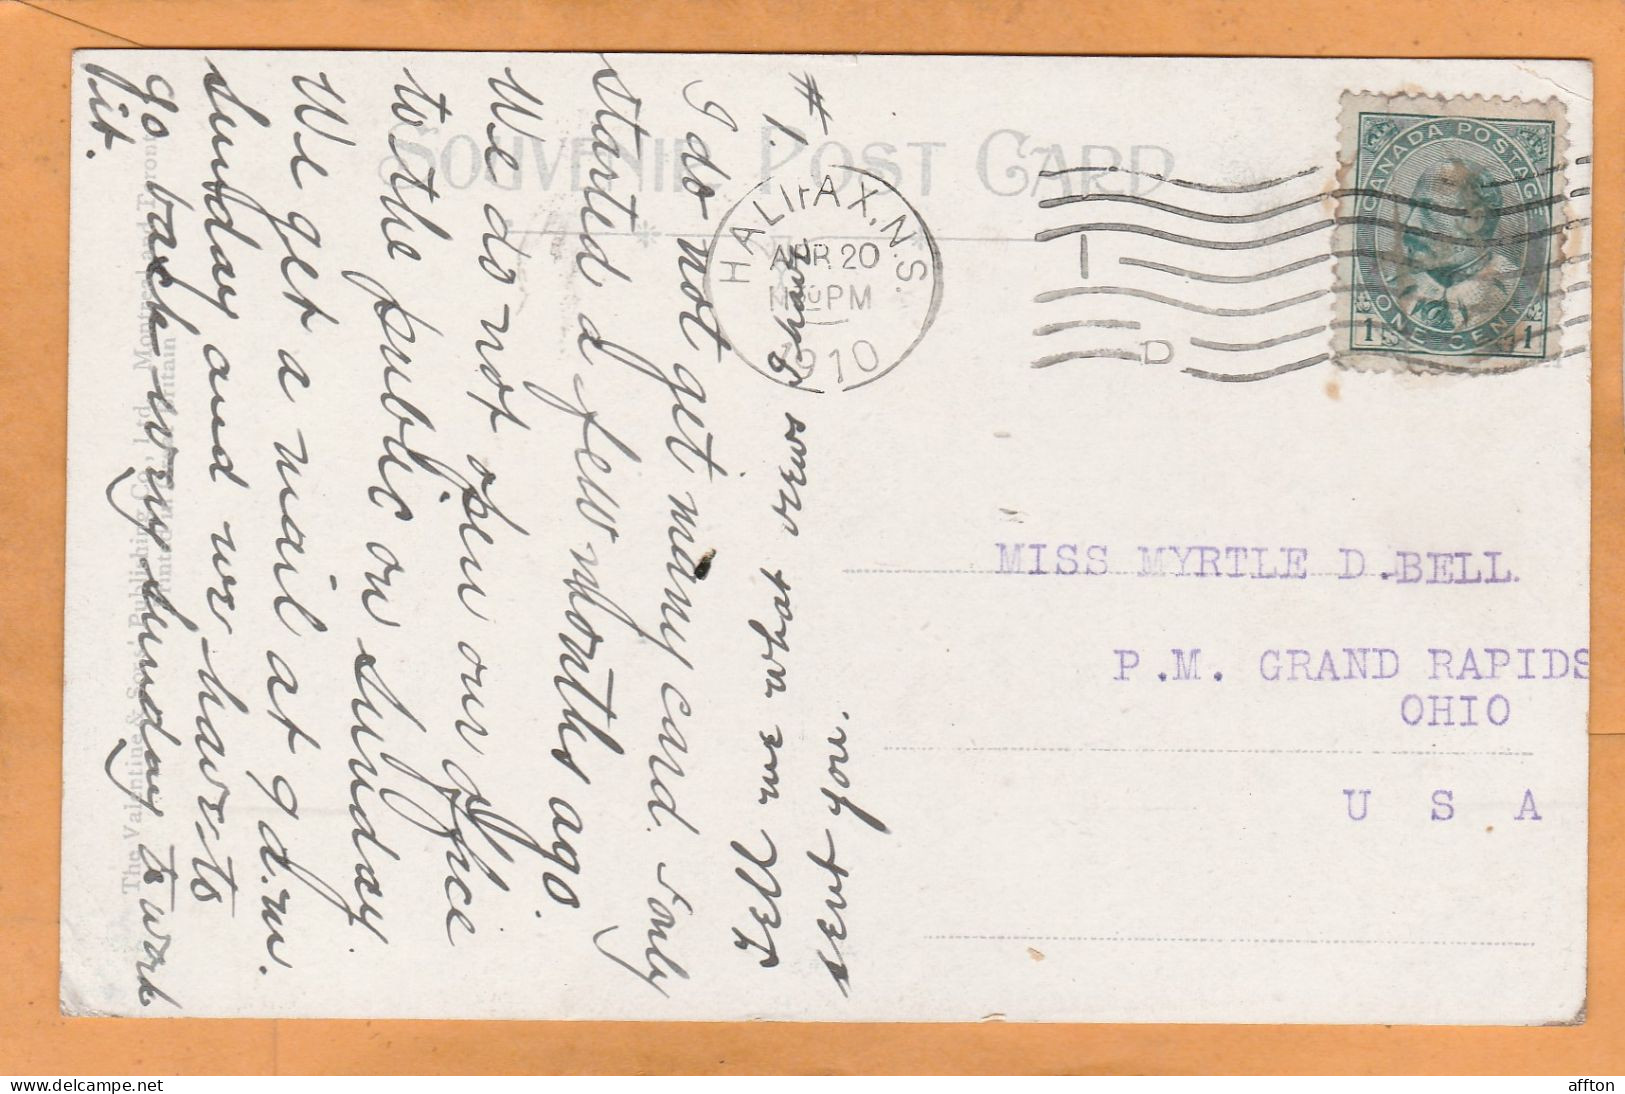 SOUVENIR POST CARD
HALIFAX, N.S.
APR 20
PM
1910
1
D
CANADA POSTAGE
1 ONE CENT 1
MISS MYRTLE D.BELL.
P.M. GRAND RAPIDS
OHIO
U S A
#1.
I do not get many card. I only
started a few months ago.
We do not open our office
to the public on Sunday.
We get a mail at 9 a.m.
Sunday and we have to
go back every Sunday to work
bit.
Let me what views I have
sent you.
The Valentine & Sons' Publishing Co., Ltd. Montreal and Toronto
Printed in Great Britain
affton